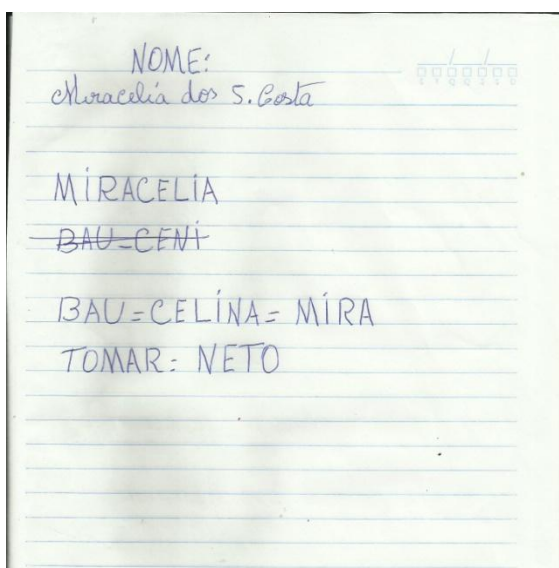 NOME:
Miracelia dos S. Costa
MIRACELIA
BAU=CENI
BAU=CELINA= MIRA
TOMAR= NETO